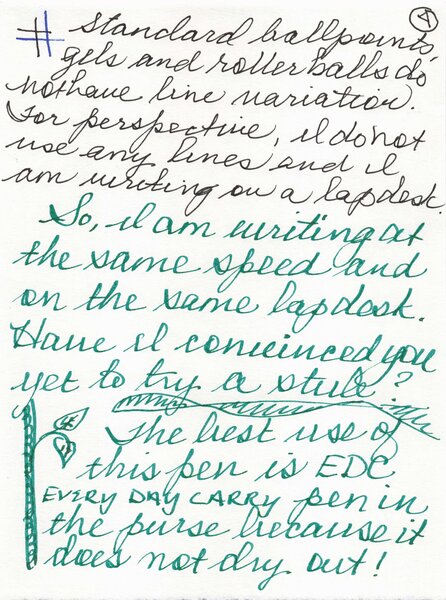 4
# standard ballpoints,
gels and rollerballs do
not have line variation.
For perspective, I do not
use any lines and I
am writing on a lapdesk.
So, I am writing at
the same speed and
on the same lapdesk.
Have I convinced you
yet to try a stub?
The best use of
this pen is EDC
EVERY DAY CARRY pen in
the purse because it
does not dry out!